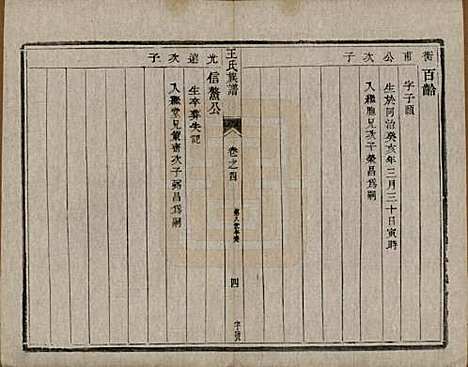 衡甫公次子
百齡
字子頤
生於同治癸亥年三月三十日寅時
入繼胞兄次子榮昌爲嗣
王氏族譜
卷之四
四
光遠次子
信鰲公
生卒葬失記
入繼堂兄 次子 昌爲嗣